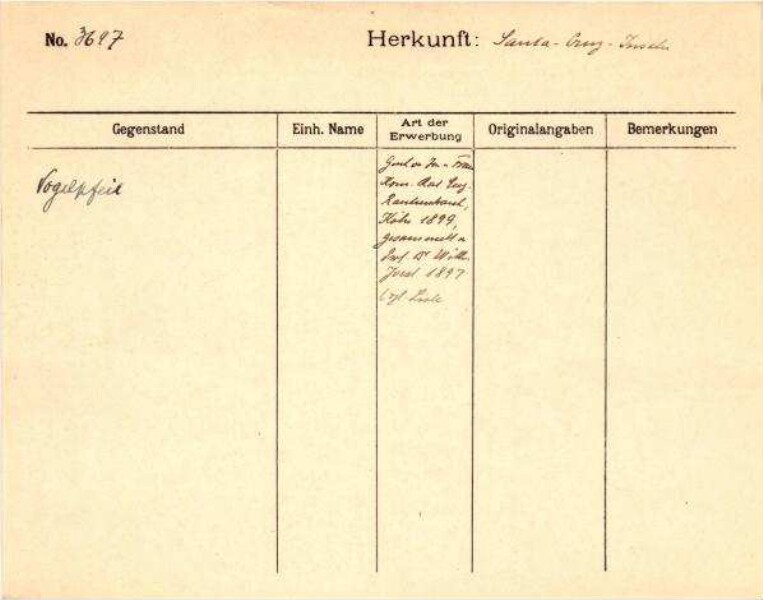 No. 3697
Herkunft: Santa-Cruz-Inseln
Gegenstand
Einh. Name
Art der
Erwerbung
Originalangaben
Bemerkungen
Vogelpfeil
Frau
Kom. Rat Eug.
Rautenstrauch,
Köln 1899,
gesammelt v.
Prof. Dr Wilh.
Joest 1897